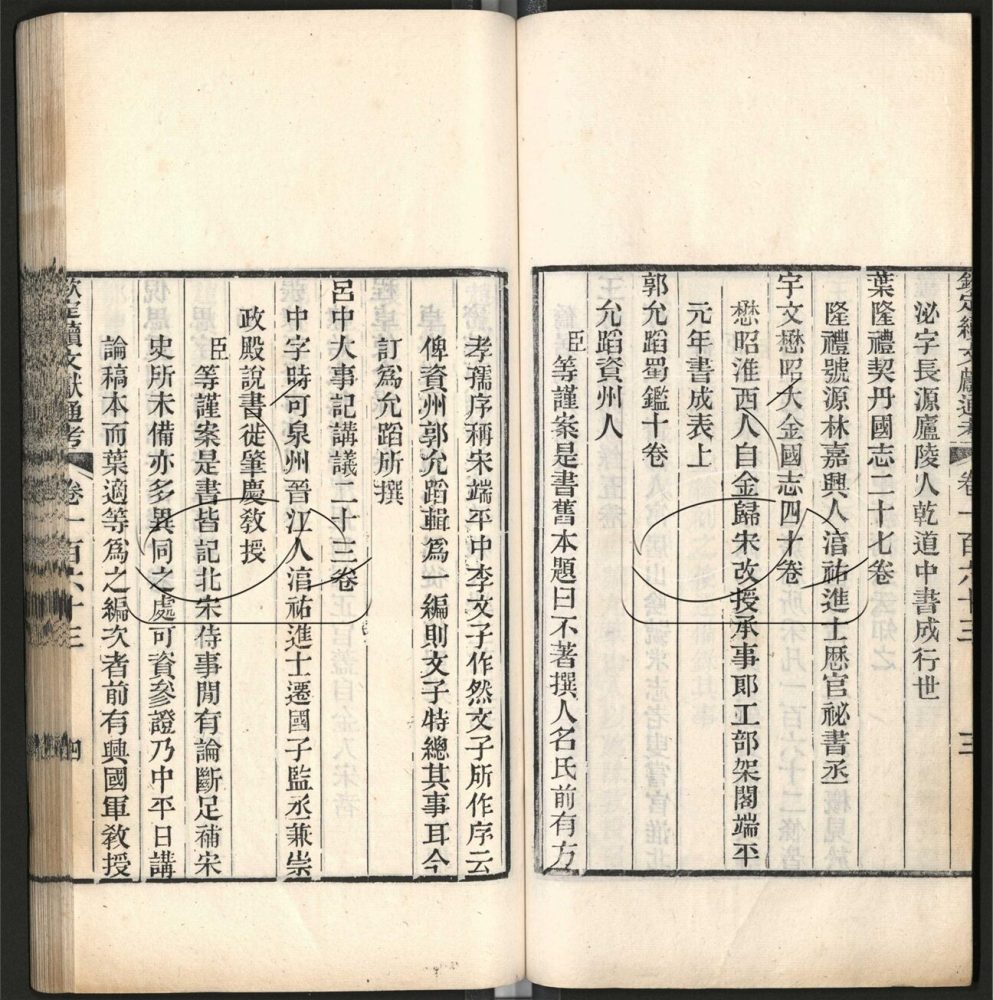 泌字長源廬陵人乾道中書成行世
葉隆禮契丹國志二十七卷
隆禮號源林嘉興人淯祐進士歷官祕書丞
宇文懋昭大金國志四十卷
懋昭淮西人自金歸宋改授承事郎工部架閣端平
元年書成表上
郭允蹈蜀鑑十卷
允蹈資州人
臣等謹案是書舊本題曰不著撰人名氏前有方
孝孺序稱宋端平中李文子作然文子所作序云
俾資州郭允蹈輯為一編則文子特總其事耳今
訂為允蹈所撰
呂中大事記講議二十三卷
中字時可泉州晉江人淯祐進士遷國子監丞兼崇
政殿說書徙肇慶敎授
臣等謹案是書皆記北宋侍事閒有論斷足補宋
史所未備亦多異同之處可資參證乃中平日講
論稿本而葉適等為之編次者前有興國軍敎授
欽定續文獻通考 卷一百六十三 三
欽定續文獻通考 卷一百六十三 四